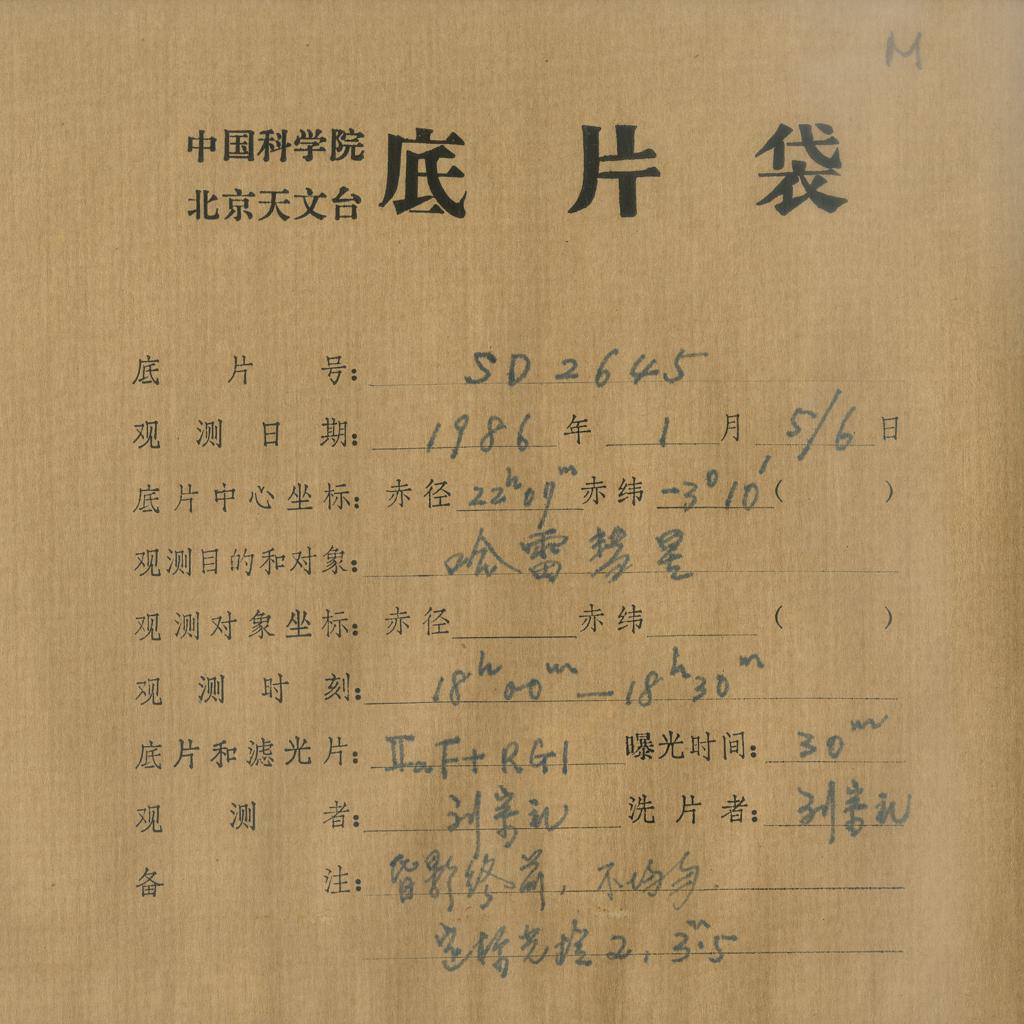 M
中国科学院
北京天文台
底片袋
底片号: SD 2645
观测日期: 1986年 1月 5/6日
底片中心坐标: 赤径 22h 07m 赤纬 -3°10′ ( )
观测目的和对象: 哈雷彗星
观测对象坐标: 赤径 赤纬 ( )
观测时刻: 18h00m — 18h30m
底片和滤光片: IIaF + RG1 曝光时间: 30m
观测者: 刘宗礼 洗片者: 刘宗礼
备注: 终前, 不均匀.
定标光 2, 3m.5